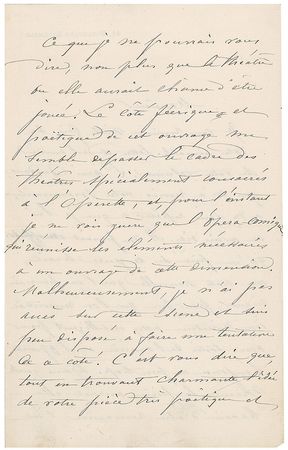 Ce que je ne pourrais vous
dire, non plus que le théâtre
ou elle aurait chance d'être
jouée. Le côté féerique et
poëtique de cet ouvrage me
semble dépasser le cadre des
théâtres spécialement consacrés
à l'Operette, et pour l'instant
je ne vois guère que l'Opera Comique
qui réunisse les éléments nécessaires
à un ouvrage de cette dimension.
Malheureusement, je n'ai pas
accès sur cette scène et suis
peu disposé à faire une tentative
de ce coté. C'est vous dire que
tout en trouvant charmante l'idée
de votre pièce très poëtique et